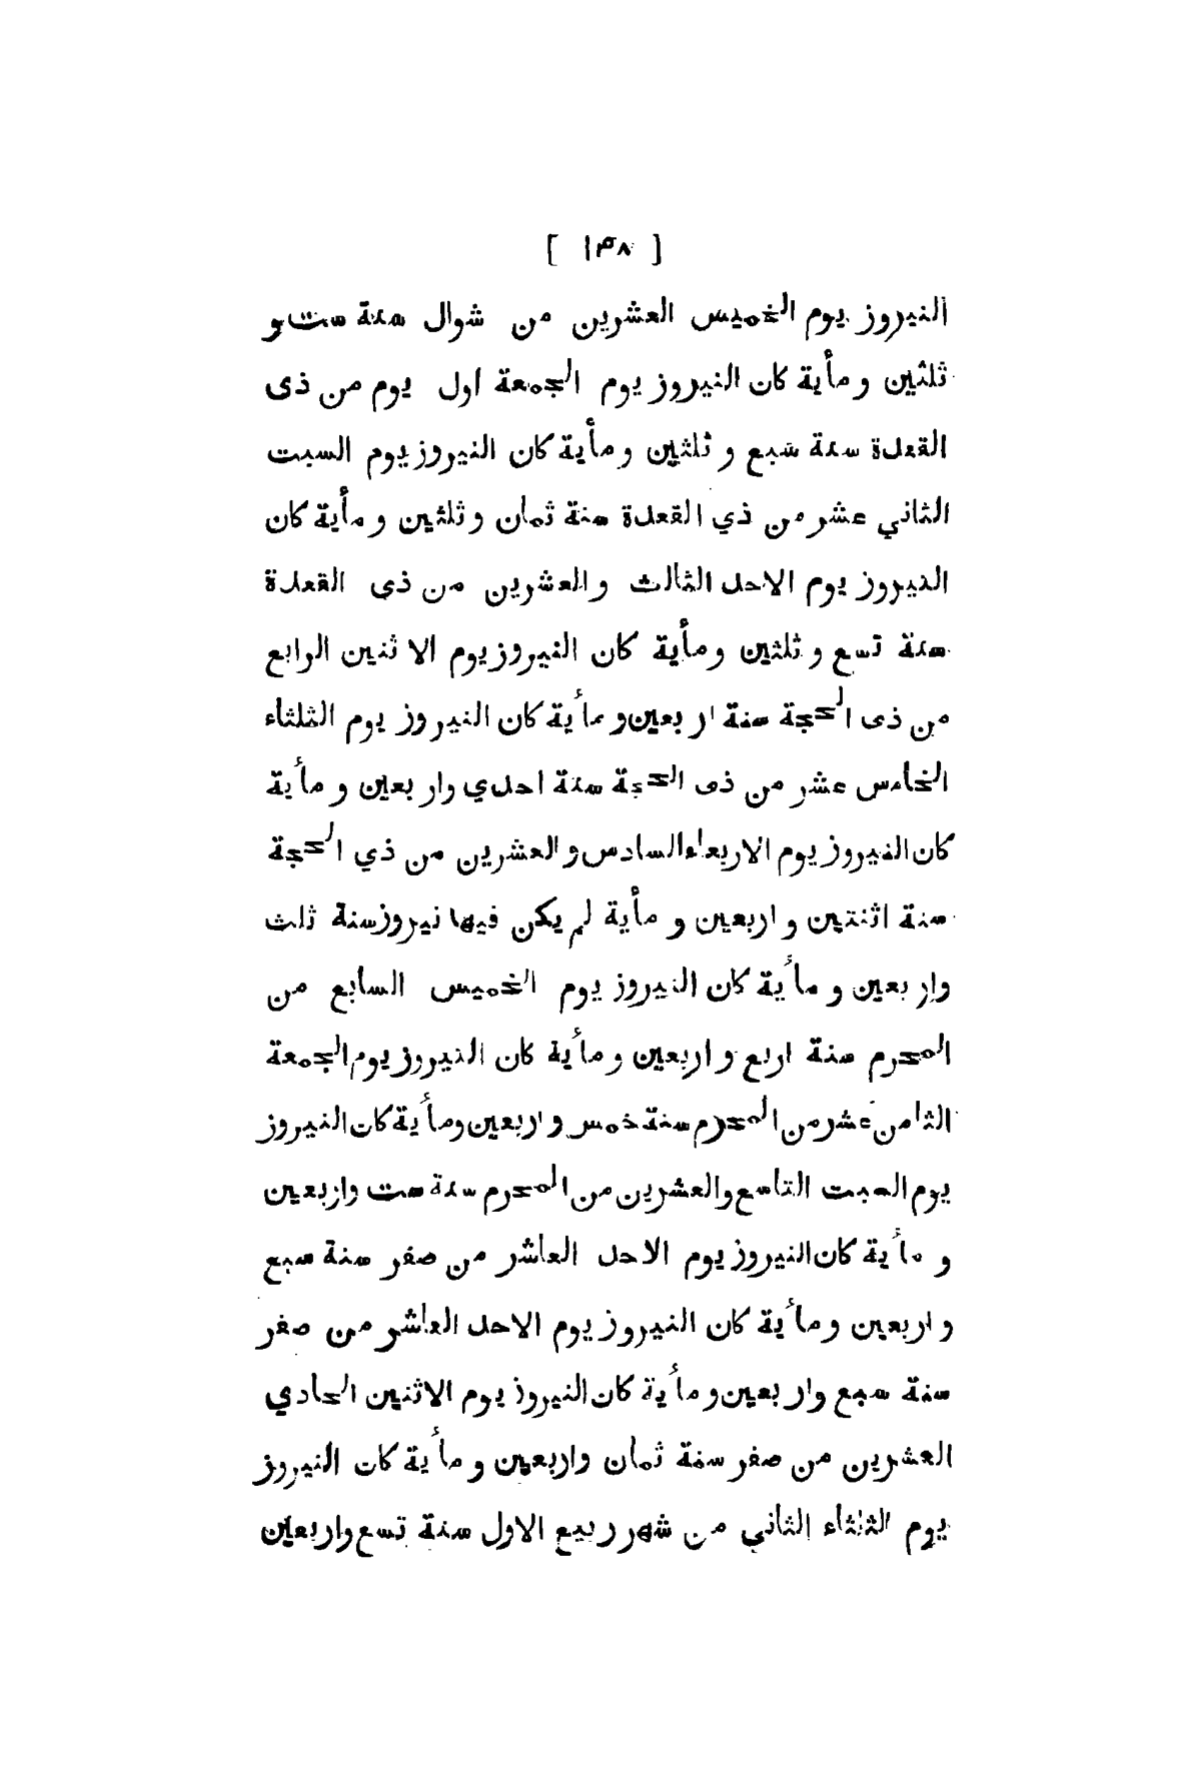 [ ١٣٨ ]
النيروز يوم الخميس العشرين من شوال سنة ست و
ثلثين و مأية كان النيروز يوم الجمعة اول يوم من ذى
القعدة سنة شبع و ثلثين و مأية كان النيروز يوم السبت
الثاني عشر من ذي القعدة سنة ثمان و ثلثين و مأية كان
النيروز يوم الاحد الثالث والعشرين من ذى القعدة
سنة تسع و ثلثين ومأية كان النيروز يوم الاثنين الرابع
من ذى الحجة سنة اربعين و مأية كان النيروز يوم الثلثاء
الخامس عشر من ذى الحجة سنة احدي واربعين و مأية
كان النيروز يوم الاربعاء السادس والعشرين من ذي الحجة
سنة اثنتين و اربعين و مأية لم يكن فيها نيروز سنة ثلث
واربعين و مأية كان النيروز يوم الخميس السابع من
المحرم سنة اربع و اربعين و مأية كان النيروز يوم الجمعة
الثامن عشر من المحرم سنة خمس و اربعين ومأية كان النيروز
يوم السبت التاسع والعشرين من المحرم سنة ست واربعين
و مأية كان النيروز يوم الاحد العاشر من صفر سنة سبع
و اربعين ومأية كان النيروز يوم الاحد العاشر من صفر
سنة سبع واربعين و مأية كان النيروز يوم الاثنين الحادي
العشرين من صفر سنة ثمان واربعين و مأية كان النيروز
يوم الثلثاء الثاني من شهر ربيع الاول سنة تسع واربعين